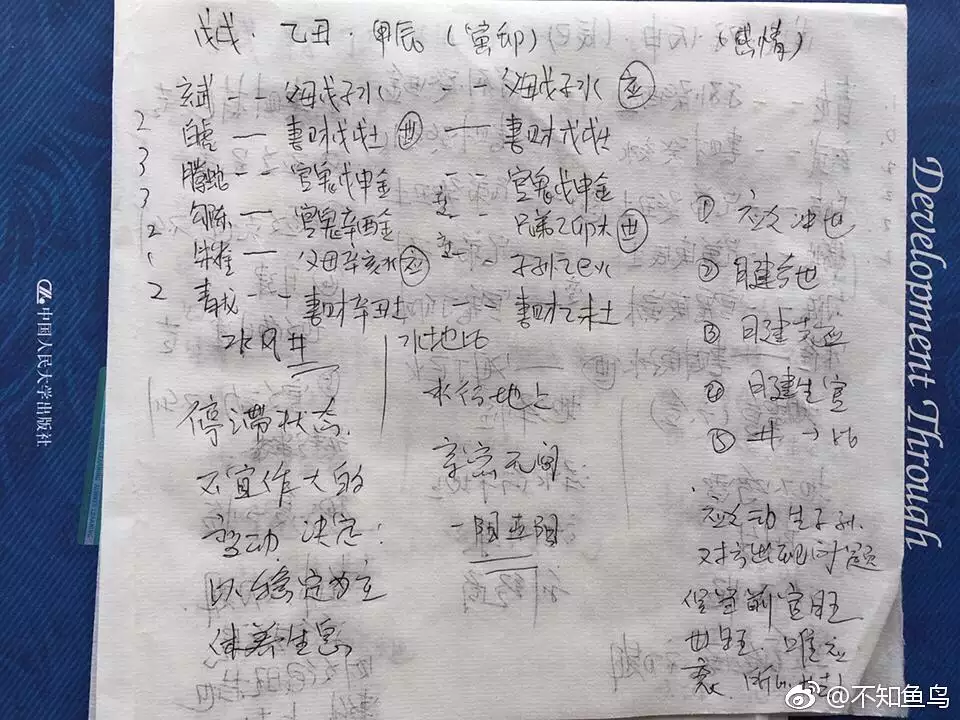 戊戌·乙丑·甲辰(寅卯) (感情)
玄武 -- 父母戊子水 -- 父母戊子水 应
2 白虎 — 妻财戊戌土 世 — 妻财戊戌土
3 腾蛇 -- 官鬼戊申金 -- 官鬼戊申金
3 勾陈 — 官鬼辛酉金 -- 兄弟乙卯木 世
2 朱雀 — 父母辛亥水 应 -- 子孙乙巳火
2 青龙 -- 妻财辛丑土 妻财乙未土
水风井
水地比
停滞状态.
不宜作大的
变动 决定:
以稳定为主
休养生息
水行地上
亲密无间
① 应爻冲世
② 日建合世
③ 月建克应
④ 月建生官
⑤ 井→比
应爻动
对方出现问题
官旺
世旺. 唯应
衰.
中国人民大学出版社
Development Through
@不知鱼鸟